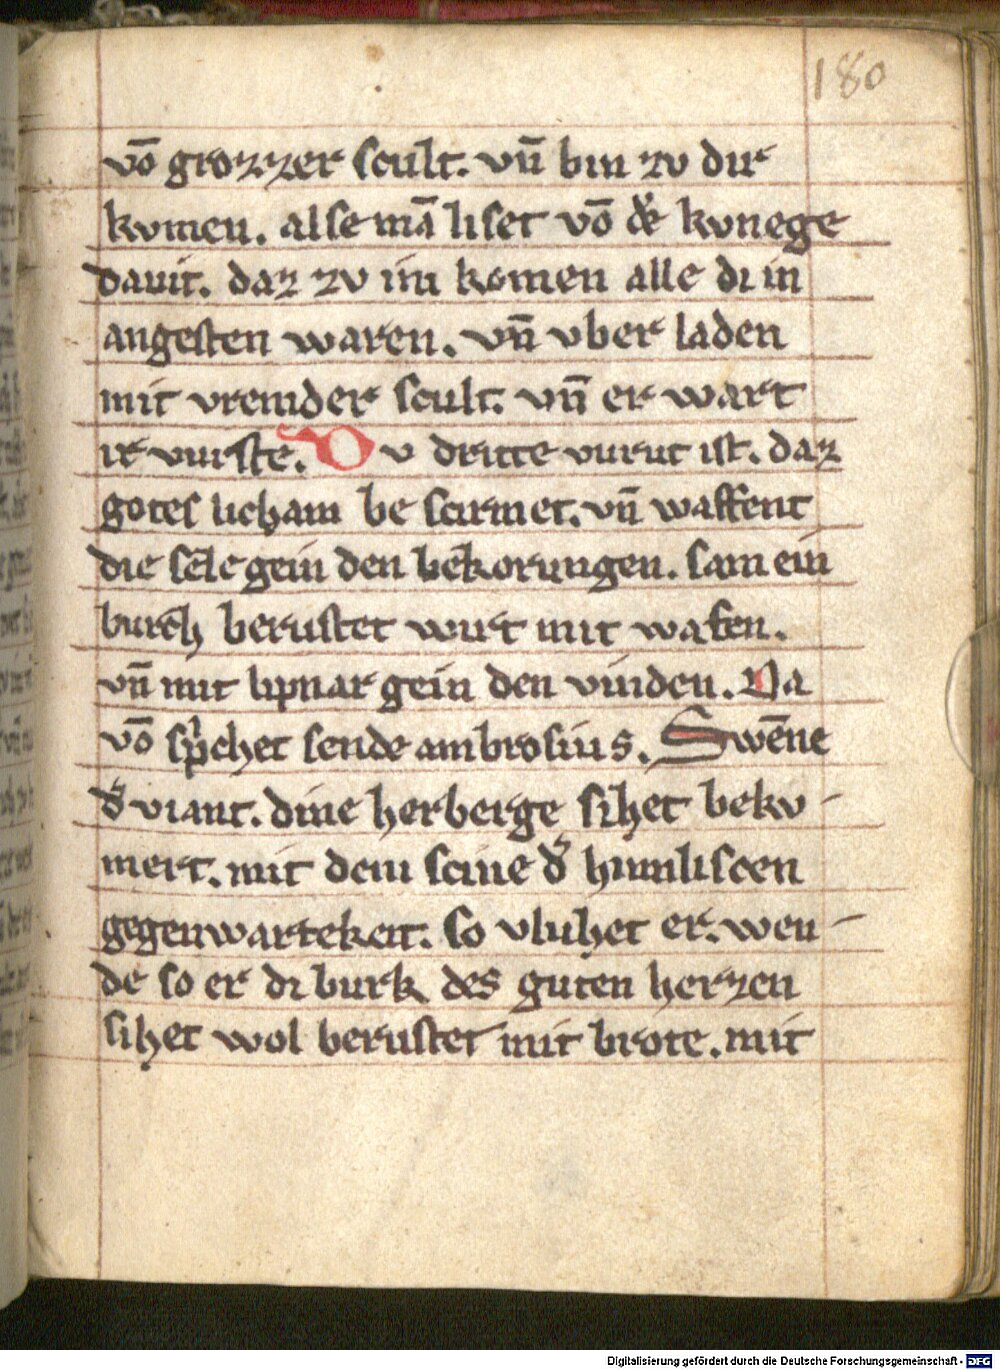 180
vō grozzer scult. vn̄ bin zv dir
kvmen. alse mā liset vō dͤ kvnege
dauit. daz zv im komen alle di in
angesten waren. vn̄ vber laden
mit vremder scult. vn̄ er wart
ir vurste. Dv dritte vurut ist. daz
gotes licham be scirmet. vn̄ waffent
die sele gein den bekorungen. sam ein
burch berustet wirt mit wafen.
vn̄ mit lipnar gein den vinden. Da
vō sp̄chet sende ambrosius. Swēne
dˢ viant. dine herberge sihet bekv-
mert. mit dem scine dˢ himliscen
gegenwartekeit. so vluhet er. wen-
de so er di burk des guten herzen
sihet wol berustet mit brote. mit
Digitalisierung gefördert durch die Deutsche Forschungsgemeinschaft - DFG